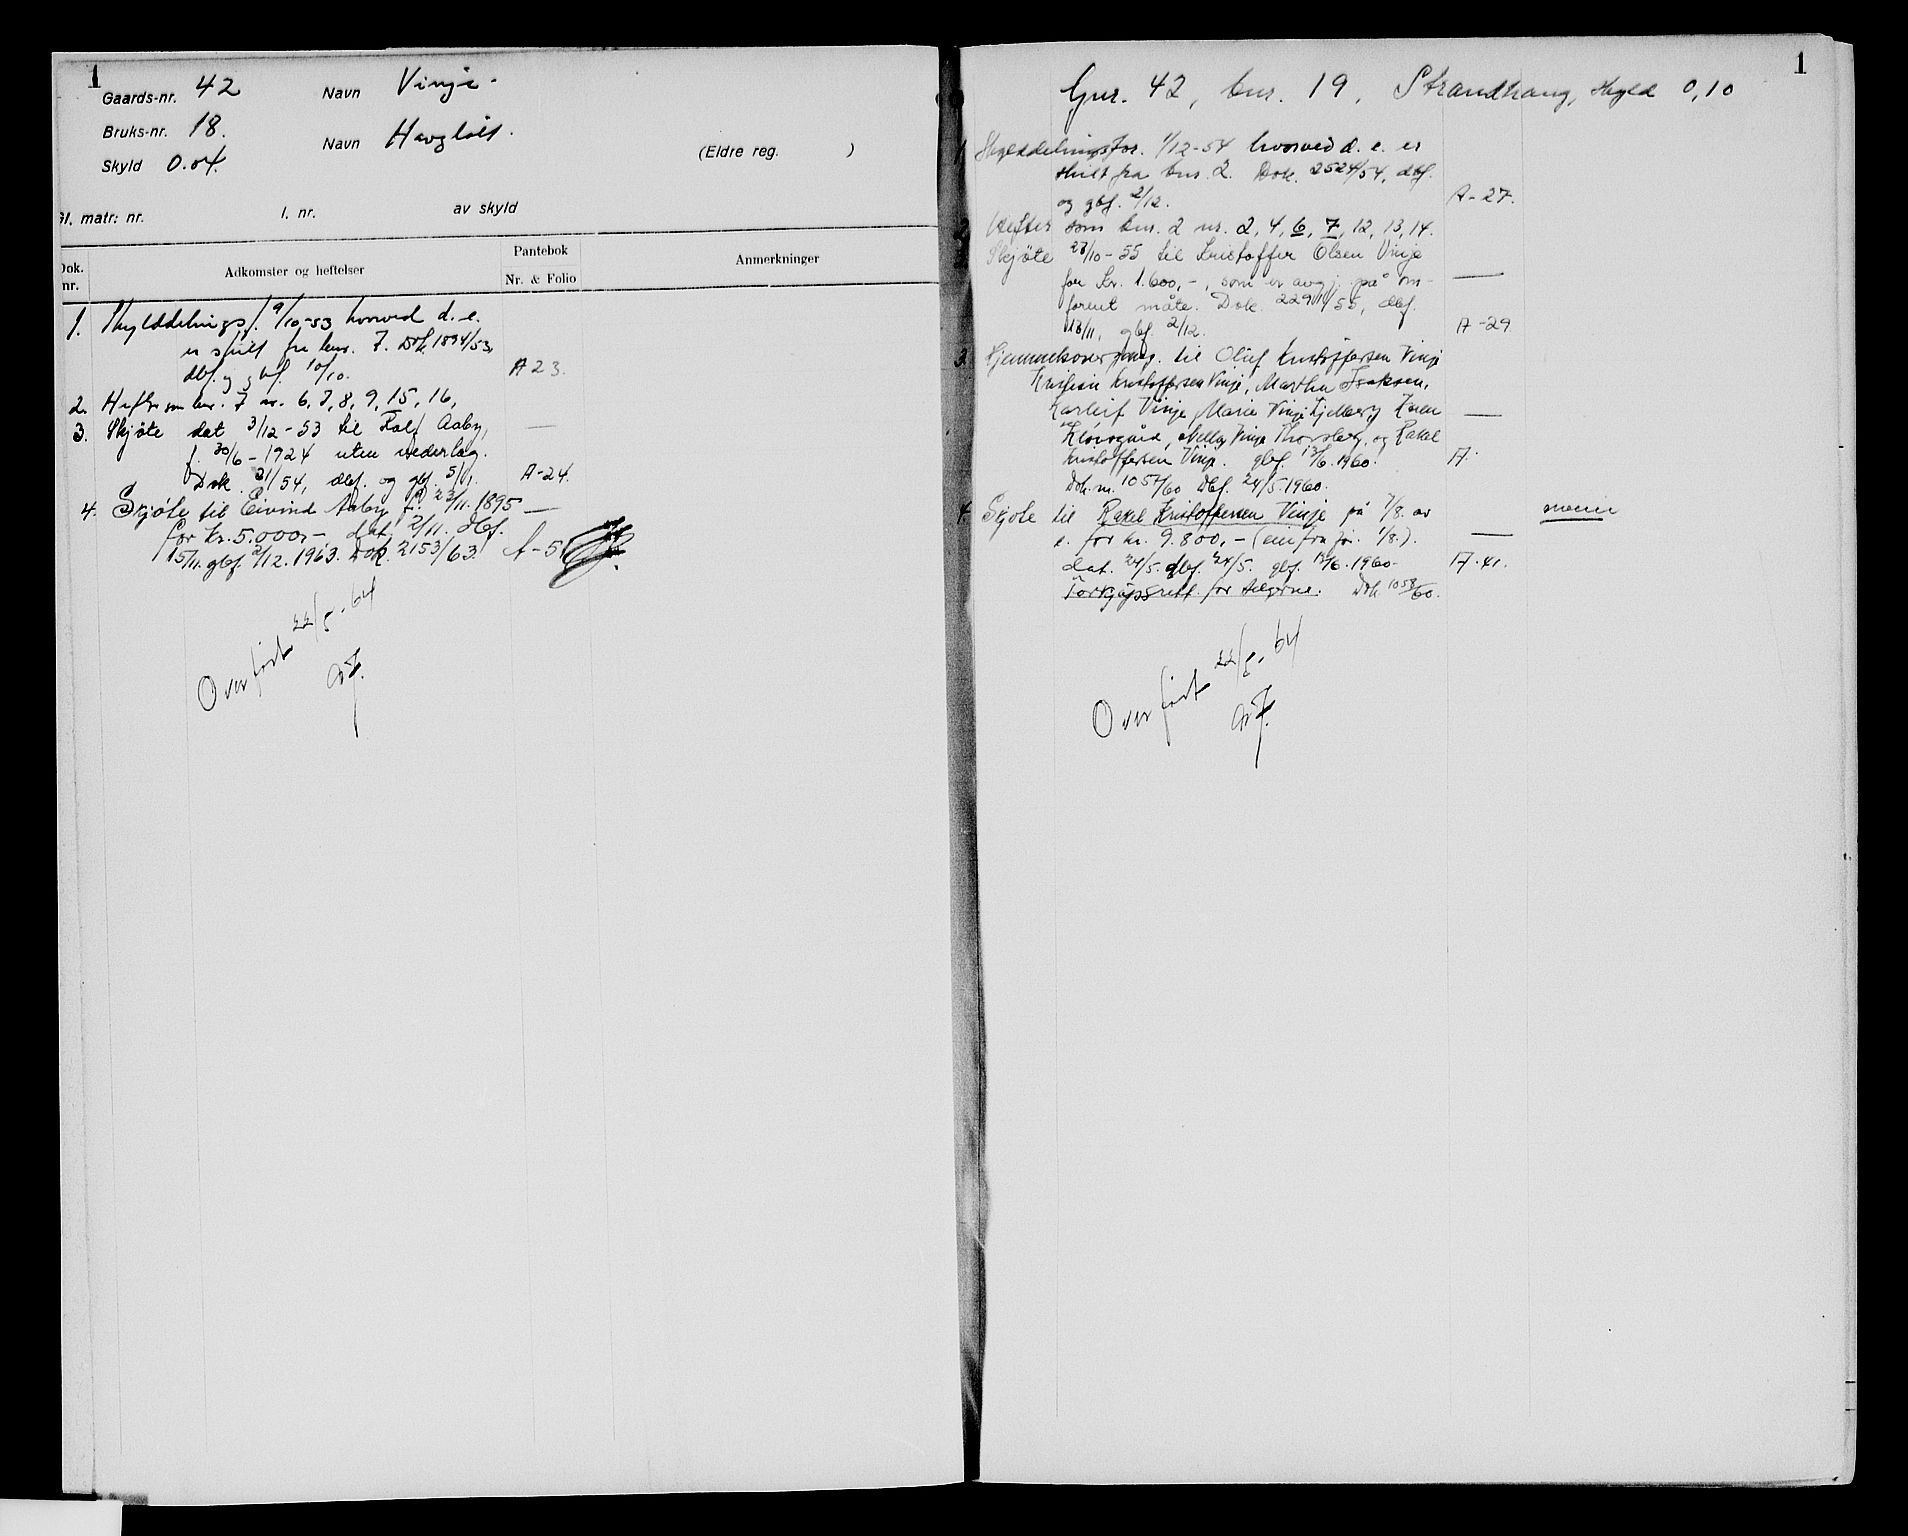 1
Gaards-nr. 42 Navn Vinje.
Bruks-nr. 18. Navn Havgløtt.
Skyld 0.04. (Eldre reg. )
Gl. matr: nr. l. nr. av skyld
Dok. nr. Adkomster og heftelser Pantebok Nr. & Folio Anmerkninger
1. Skylddelingsf. 9/10-53 hvorved d. e.
er skilt fra bnr. 7. Dok. 1894/53,
dbf. og gbf. 10/10. A 23.
2. Hefter som bnr. 7 nr. 6, 7, 8, 9, 15, 16,
3. Skjøte dat 3/12-53 til Rolf Aaby,
f. 30/6-1924 uten vederlag.
Dok. 21/54, dbf. og gbf. 5/1. A-24.
4. Skjøte til Eivind Aaby f. 23/11.1895
for kr. 5.000,- dat. 2/11. dbf.
15/11. gbf. 2/12.1963. Dok. 2153/63. A-51
Overført 22/5-64
1
Gnr. 42, bnr. 19, Strandhaug, skyld 0,10
1. Skylddelingsfor. 1/12-54 hvorved d. e. er
skilt fra bnr. 2. Dok. 2524/54, dbf.
og gbf. 2/12. A-27.
2. Hefter som bnr. 2 nr. 2, 4, 6, 7, 12, 13, 14.
Skjøte 27/10-55 til Kristoffer Olsen Vinje
for kr. 1.600,-, som er avgj. på om-
forent måte. Dok. 2291/55, dbf.
18/11, gbf. 2/12. A-29
3. Hjemmelsovergang. til Oluf Kristoffersen Vinje
Kristian Kristoffersen Vinje, Martha Isaksen,
Karleif Vinje, Marie Vinje Kjelberg, Karen
Kloisgård, Nelly Vinje Thorsberg, og Rakel
Kristoffersen Vinje. gbf. 13/6.1960. A.
Dok. nr. 1057/60 Dbf. 24/5.1960.
4. Skjøte til Rakel Kristoffersen Vinje på 7/8. av
e. for kr. 9.800,- (eier fra før 1/8).
dat. 24/5. dbf. 24/5. gbf. 13/6.1960. A.41.
Forkjøpsrett for selgerne. Dok 1058/60.
Overført 22/5-64